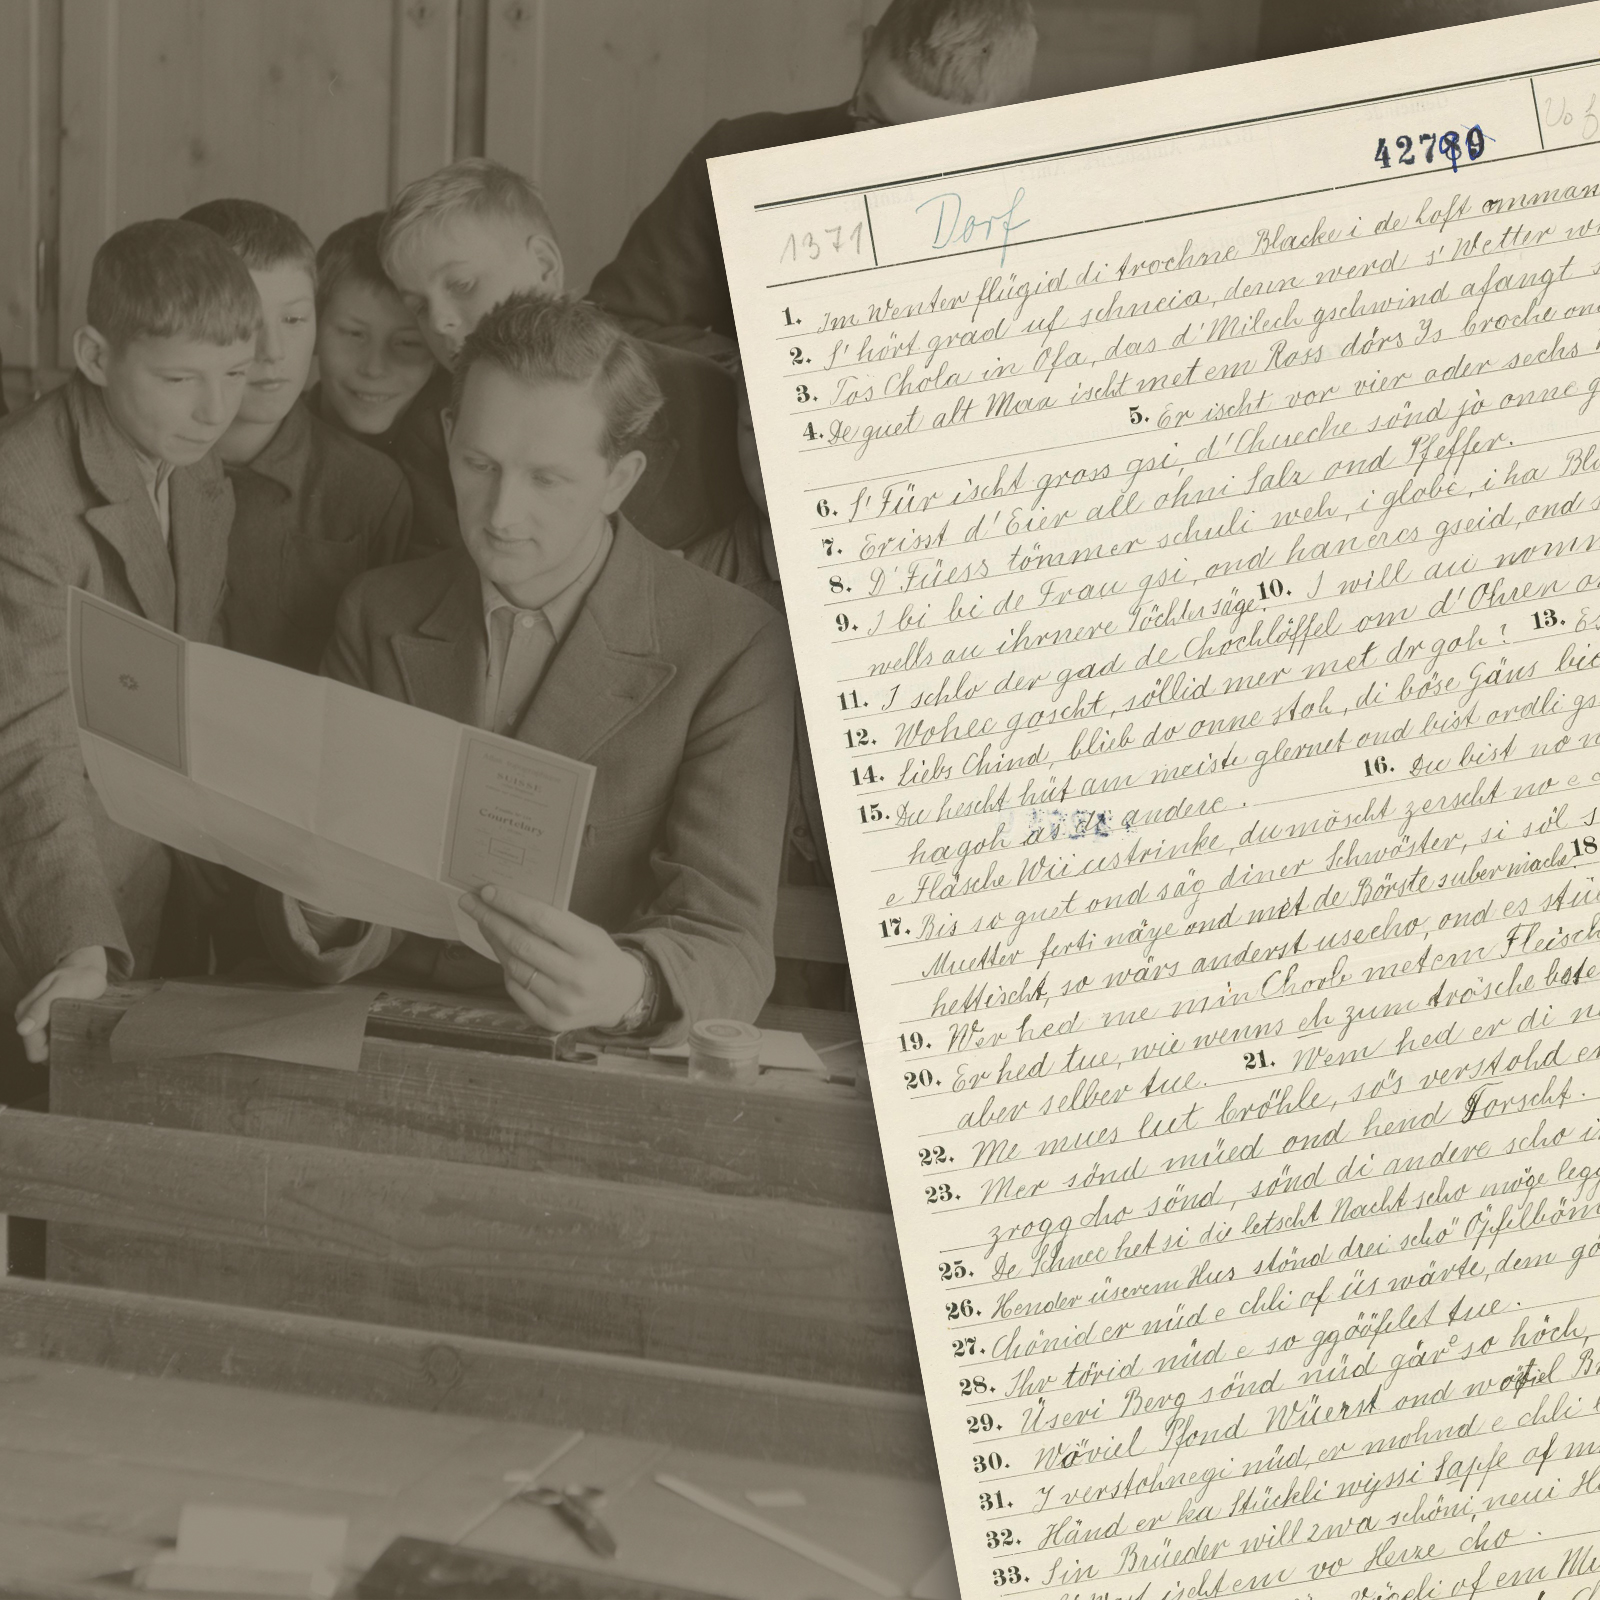 SUISSE
Courtelary
42789
1371 Dorf
1. Im Wenter flügid di trochne Blacke i de Loft ommanand
2. S' hört grad uf schneia, denn werd s' Wetter
3. Tos Chola in Ofa, das d' Milech gschwind afangt
4. De guet alt Maa ischt met em Ross dörs Ys broche ond
5. Er ischt vor vier oder sechs
6. S' Für ischt gross gsi, d' Chueche sönd jo onne
7. Er isst d' Eier all ohni Salz ond Pfeffer.
8. D' Füess tömmer schuli weh, i globe, i ha
9. I bi bi de Frau gsi, ond haneres gseid, ond
wells au ihrnere Töchter säge. 10. I will au
11. I schlo der gad de Chochlöffel om d' Ohren
12. Wohee goscht, söllid mer met dr goh! 13. Es
14. Liebs Chind, blieb do onne stoh, di böse Gäns
15. Du hescht hüt am meiste glernet ond bist ordli
hagoh as di andere. 16. Du bist no
e Fläsche Wii ustrinke, du möscht zerscht no e
17. Bis so guet ond säg diner Schwöster, si söl
Muetter ferti näye ond met de Börste suber mache. 18
hettischt, so wärs anderst usecho, ond es
19. Wer hed me min Chorb metem Fleisch
20. Er hed tue, wie wenns eh zum trösche
aber selber tue. 21. Wem hed er di
22. Me mues lut bröhle, sös verstohd
23. Mer sönd müed ond hend Torscht.
zrogg cho sönd, sönd di andere scho
25. De Schnee het si die letscht Nacht scho möge
26. Hender üserem Hus stönd drei schö Öpfelböm
27. Chönid er nüd e chli of üs wärte, dem
28. Ihr törid nüd e so ggööfelet tue.
29. Üseri Berg sönd nüd gär so höch,
30. Wöviel Pfond Wüerst ond wöviel
31. I verstohnegi nüd, er mohnd e chli
32. Händ er ka Stückli wyssi Sapfe of
33. Sin Brüeder will zwa schöni, neui
ischt em vo Herze cho.
Vögeli of em